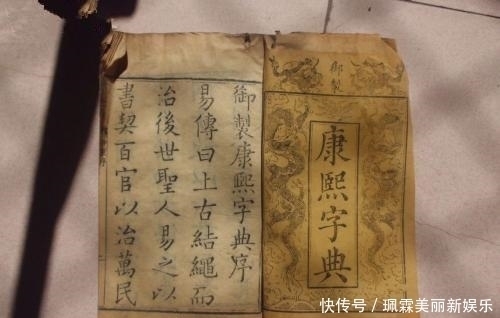 御製
康熙字典
御製康熙字典序
易傳曰上古結繩而
治後世聖人易之以
書契百官以治萬民
快传号/珮霖美丽新娱乐